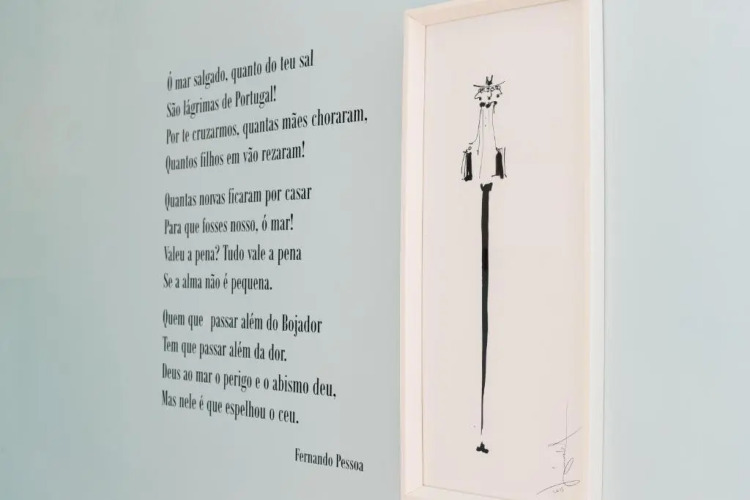 Ó mar salgado, quanto do teu sal
São lágrimas de Portugal!
Por te cruzarmos, quantas mães choraram,
Quantos filhos em vão rezaram!
Quantas noivas ficaram por casar
Para que fosses nosso, ó mar!
Valeu a pena? Tudo vale a pena
Se a alma não é pequena.
Quem que passar além do Bojador
Tem que passar além da dor.
Deus ao mar o perigo e o abismo deu,
Mas nele é que espelhou o ceu.
Fernando Pessoa